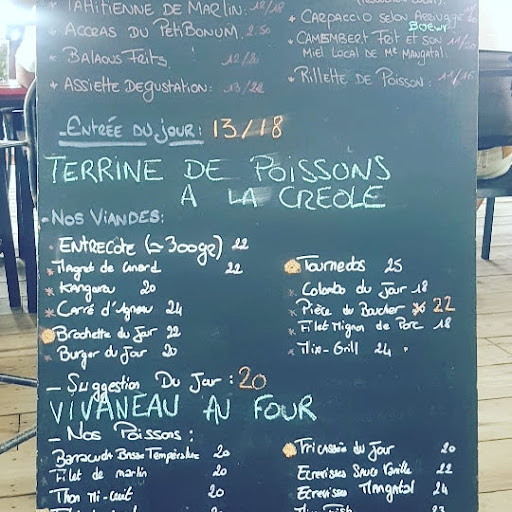 TAHITIENNE DE MARLIN: 12/18
ACCRAS DU PETIBONUM. 2.50
BALAOUS FRITS 12/8
ASSIETTE DEGUSTATION: 13/22
CARPACCIO SELON ARRIVAGE
BOEUF
CAMEMBERT FRIT ET SON 11/20
MIEL LOCAL DE Me MANGATAL
RILLETTE DE POISSON: 11/16
ENTRÉE DU JOUR: 13/18
TERRINE DE POISSONS
A LA CREOLE
- NOS VIANDES:
ENTRECOTE (≃300gr) 22
Magret de Canard 22
Kangurou 20
Carré d'Agneau 24
Brochette du Jour 22
Burger du Jour 20
Tournedos 25
Colombo du Jour 18
Pièce du Boucher 22
Filet Mignon de Porc 18
Mix-Grill 24
- Suggestion Du Jour: 20
VIVANEAU AU FOUR
- Nos Poissons:
Barracuda Basse Température 20
Filet de marlin 20
Thon Mi-cuit 20
Fricassée du Jour 20
Ecrevisses Sauce Vanille 22
Ecrevisses Mangatal 24
23